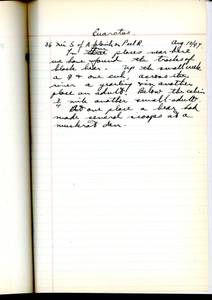 Euarctos
26 mi S of A
Peel R. Aug 14/47
In three places near here
we have found the tracks of
black bear. Up the small creek
a ♀ and one cub, across the
river a yearling & in another
place an adult. Below the cabin
mile another small adult.
At one place a bear had
made several scoops at a
muskrat den.